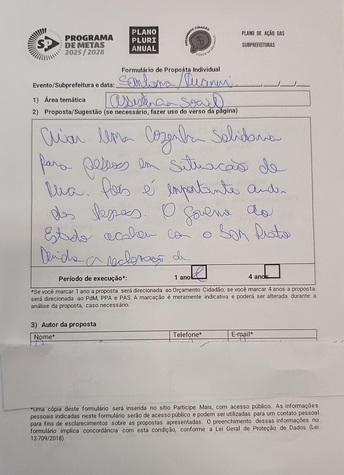 PROGRAMA
DE METAS
2025 / 2028
PLANO
PLURI
ANUAL
PLANO DE AÇÃO DAS
SUBPREFEITURAS
Formulário de Proposta Individual
Evento/Subprefeitura e data: Santana/Tucuruvi
1) Área temática Assistência Social
2) Proposta/Sugestão (se necessário, fazer uso do verso da página)
Criar uma Cozinha Solidaria
para pessoas em situação de
Rua. Pois é importante
das pessoas. O governo do
Estado acabou com o Bom Prato
Período de execução*: 1 ano 4 anos
*Se você marcar 1 ano a proposta será direcionada ao Orçamento Cidadão; se você marcar 4 anos a proposta
será direcionada ao PdM, PPA e PAS. A marcação é meramente indicativa e poderá ser alterada durante a
análise da proposta, caso necessário.
3) Autor da proposta
Nome* Telefone* E-mail*
*Uma cópia deste formulário será inserida no sítio Participe Mais, com acesso público. As informações
pessoais indicadas neste formulário serão de acesso público e podem ser utilizadas para um contato pessoal
para fins de esclarecimentos sobre as propostas apresentadas. O preenchimento dessas informações no
formulário implica concordância com esta condição, conforme a Lei Geral de Proteção de Dados (Lei
13.709/2018)